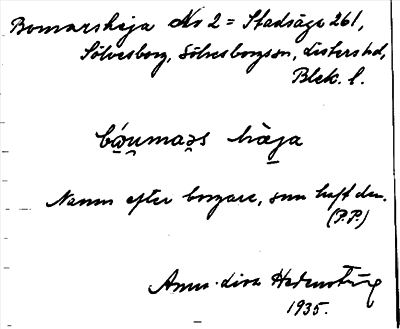 Bomarshaja No 2 = Stadsäga 261,
Sölvesborg, Sölvesborgssn, Listers hd,
Blek. l.
bóumas haja
Namn efter borgare, som haft den.
(P.P.)
Anna-Lisa
1935.